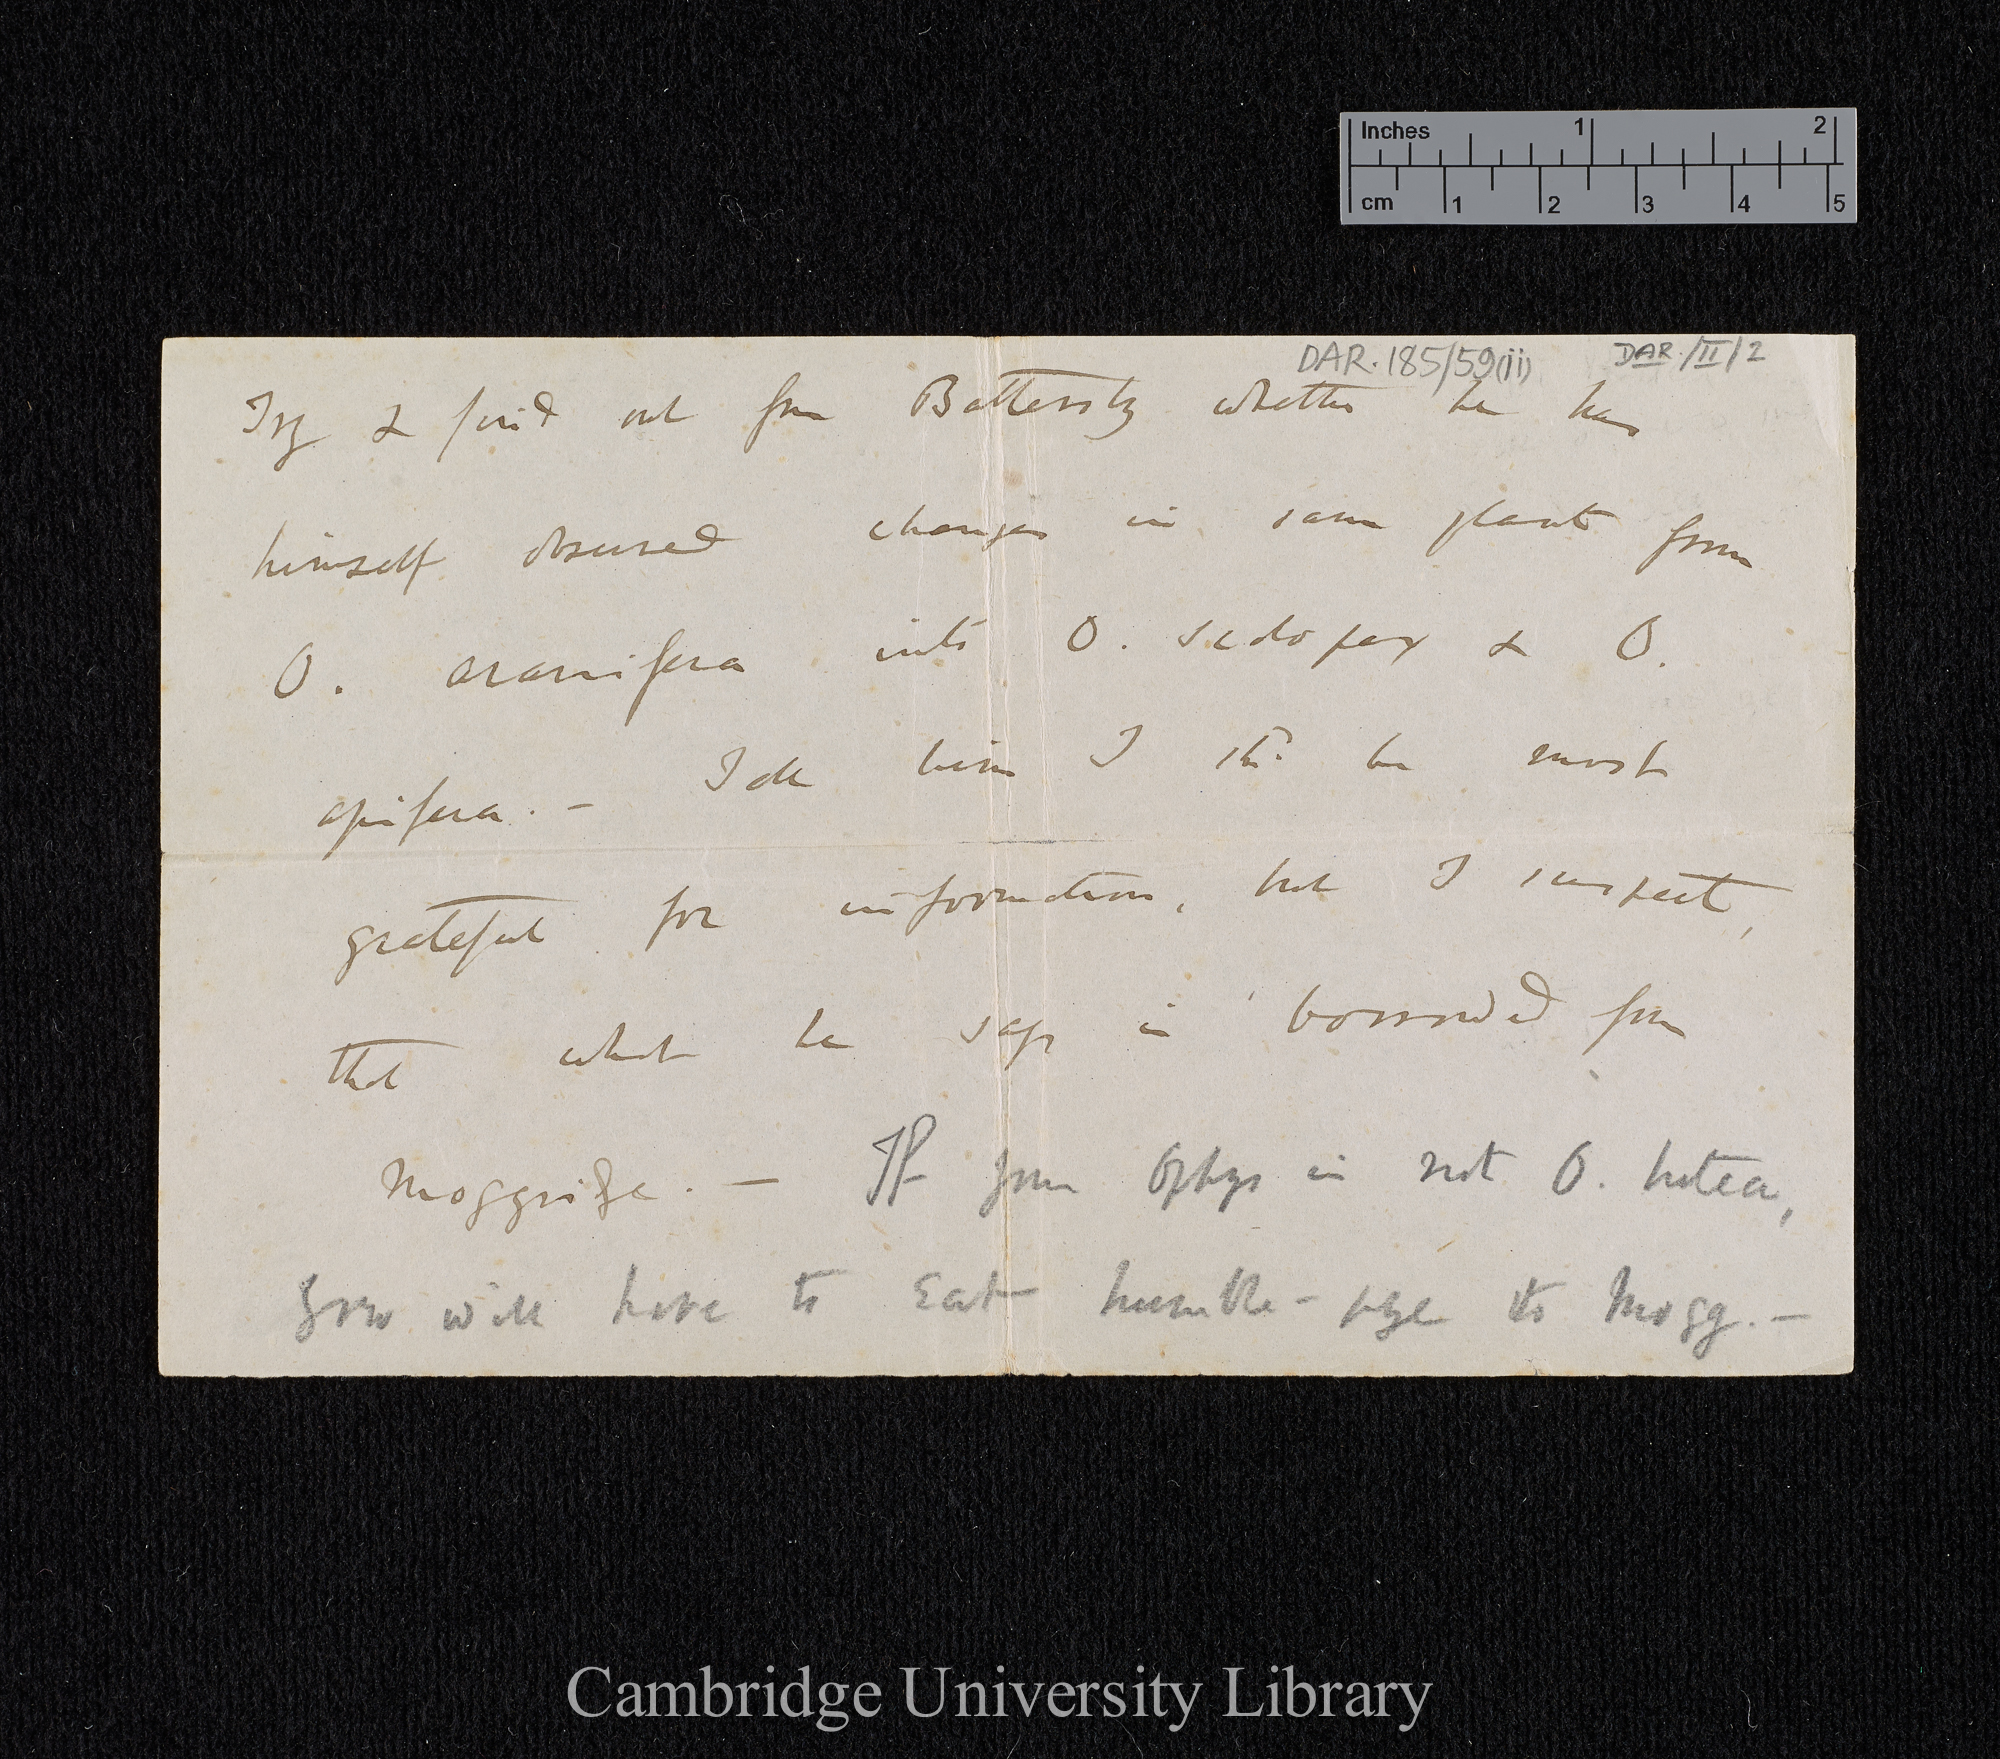 Inches 1 2
cm 1 2 3 4 5
DAR. 185/59(ii) DAR./II/2
Try & find out from Battersby whether he has
himself observed changes in same plant from
O. aranifera into O. scolopax & O.
apifera. — Tell him I shd. be most
grateful for information, but I suspect,
that what he says is borrowed from
Moggridge. — If your Ophrys is not O. lutea,
you will have to eat humble-pye to Mogg. —
Cambridge University Library